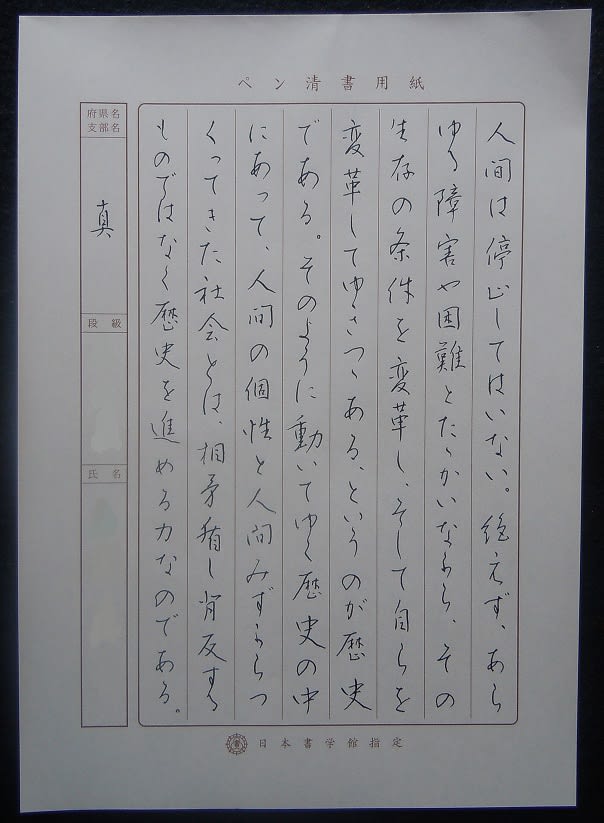 ペン清書用紙
人間は停止してはいない。絶えず、あら
ゆる障害や困難とたゝかいながら、その
生存の条件を変革し、そして自らを
変革してゆきつゝある、というのが歴史
である。そのように動いてゆく歴史の中
にあって、人間の個性と人間みずからつ
くってきた社会とは、相矛盾し背反する
ものではなく歴史を進める力なのである。
府県名
支部名
真
段級
氏名
書
日本書学館指定